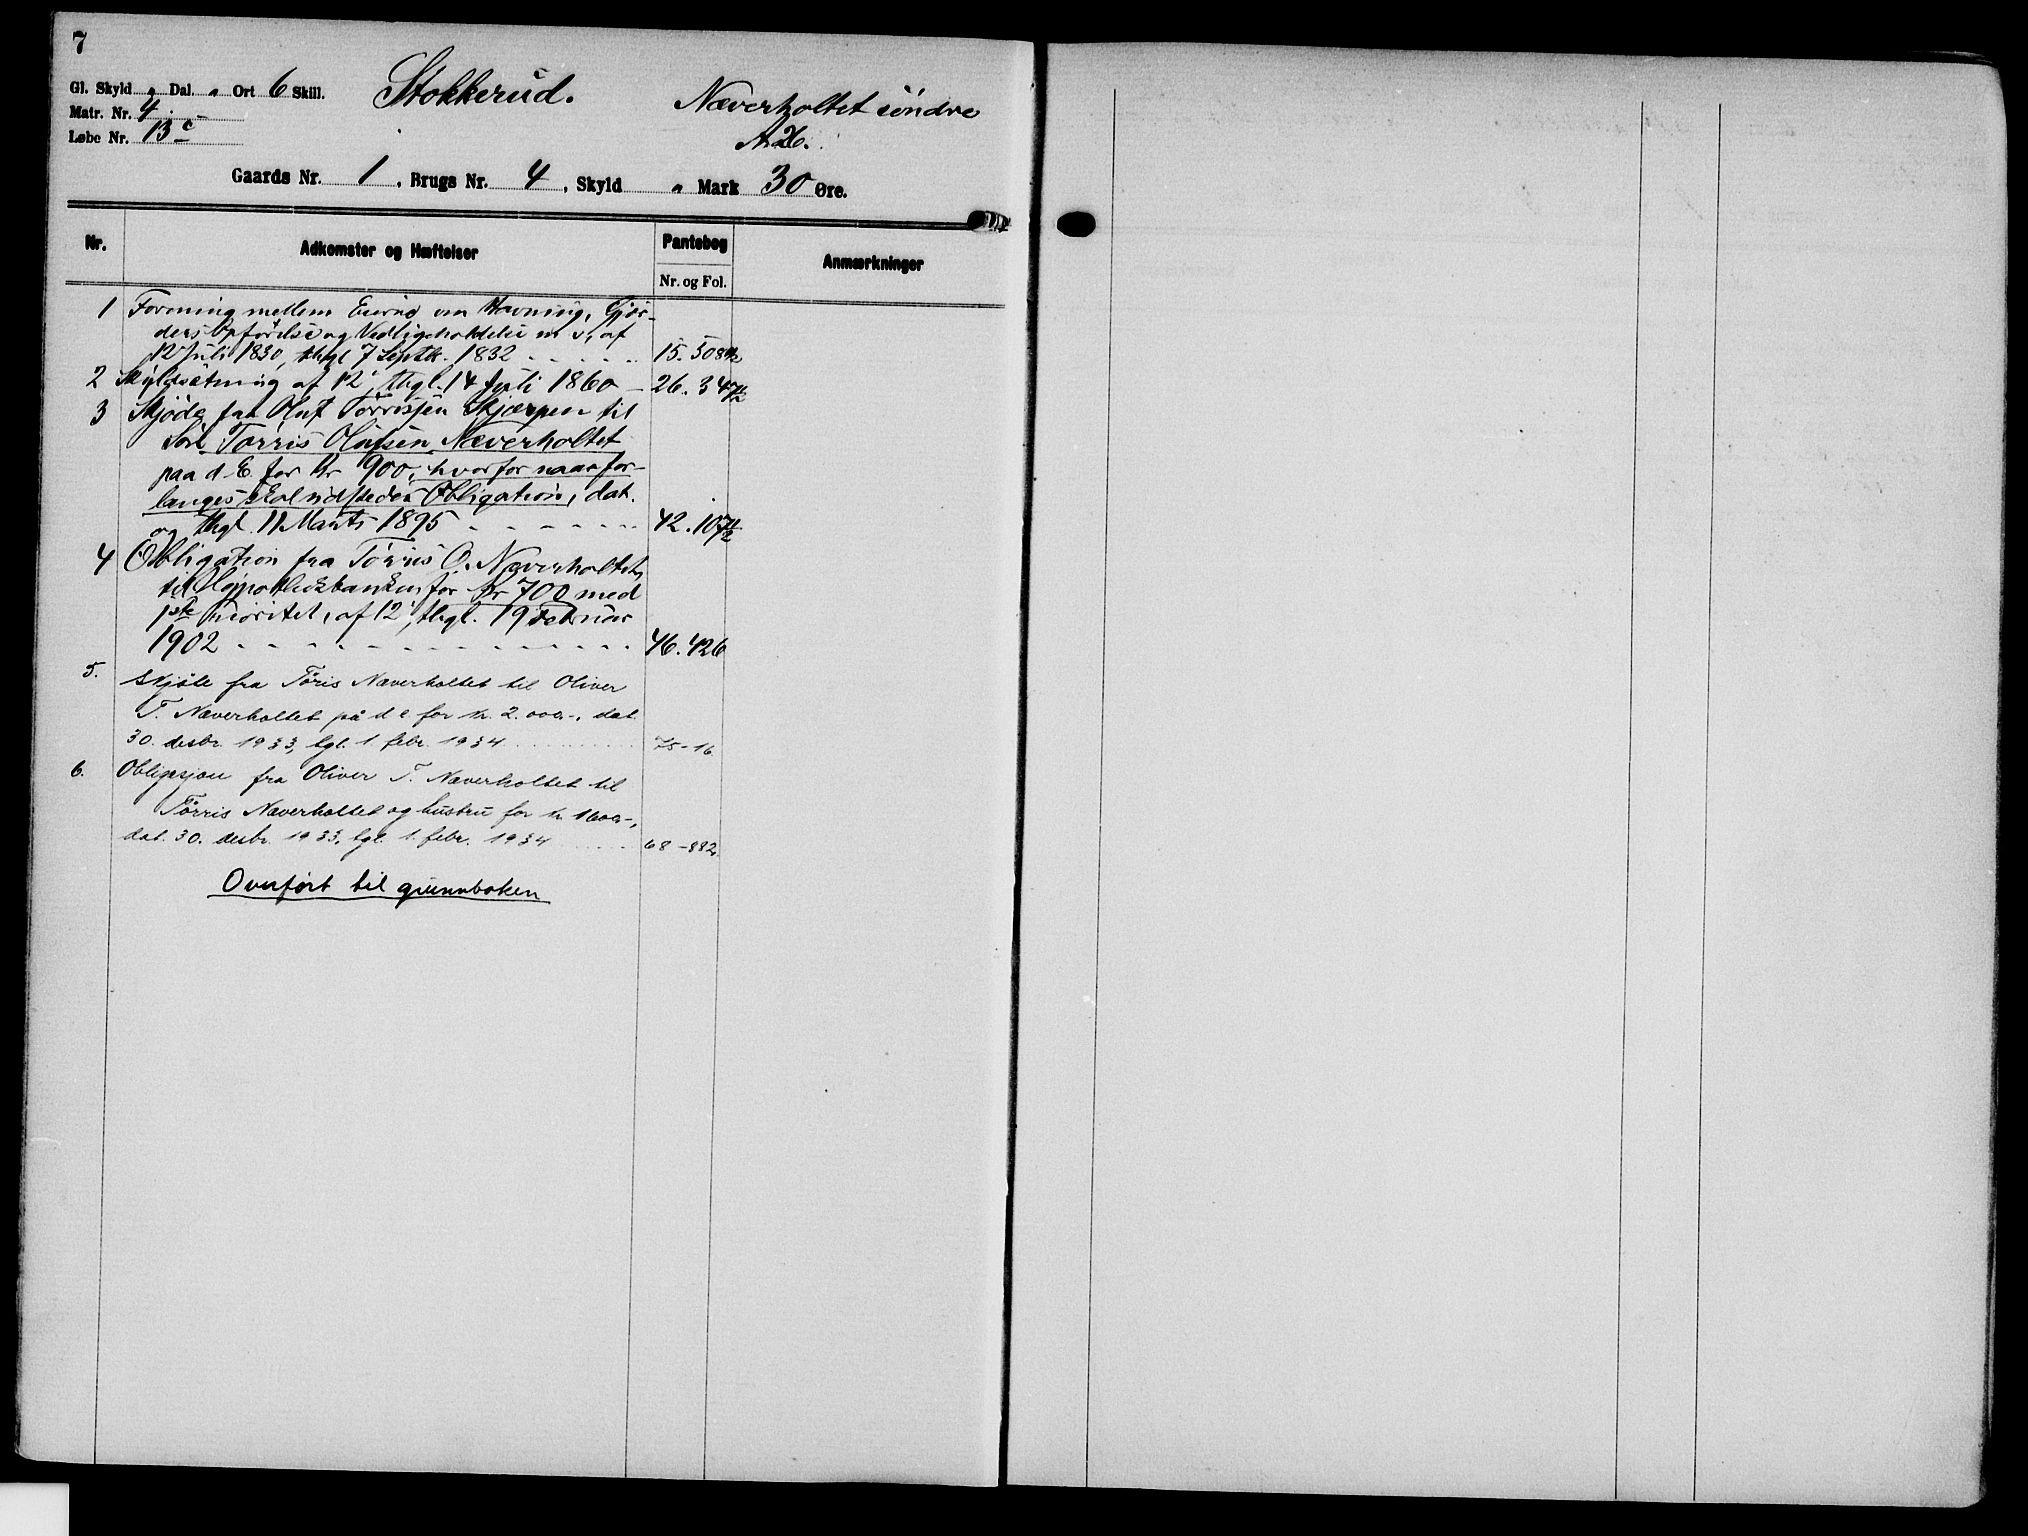 7
Gl. Skyld " Dal. " Ort 6 Skill.
Matr. Nr. 4.
Løbe Nr. 13c
Stokkerud.
Næverholtet søndre
Gaards Nr. 1, Brugs Nr. 4, Skyld " Mark 30 Øre.
Nr.
Adkomster og Hæftelser
Pantebog
Nr. og Fol.
Anmærkninger
1 Forening mellem om Havning, Gjær-
ders Opførelse og Vedligeholdelse m v, af
12 Juli 1830, thgl 7 Septbr. 1832 15. 508
2 Skyldsætning af 12, thgl. 14 Juli 1860 26. 347
3 Skjøde fra Oluf Tørrissen Skjærpen til
Tørris Olufsen Næverholtet
paa d E for Kr 900, hvorfor naar for-
langes skal udstedes Obligation, dat.
og thgl. 11 Marts 1895 42. 107
4 Obligation fra Tørris O. Næverholtet,
til Hypothekbanken for Kr 700 med
1ste Prioritet, af 12, thgl. 19 Februar
1902 46. 426
5. Skjøte fra Tøris Næverholtet til Oliver
T. Næverholtet på d e for kr. 2.000.-, dat.
30. desbr. 1933, tgl. 1 febr. 1934 75-16
6. Obligasjon fra Oliver T. Næverholtet til
Tørris Næverholtet og hustru for kr 1600.-,
dat. 30. desbr. 1933, tgl. 1. febr. 1934 68-882.
Overført til grunnboken